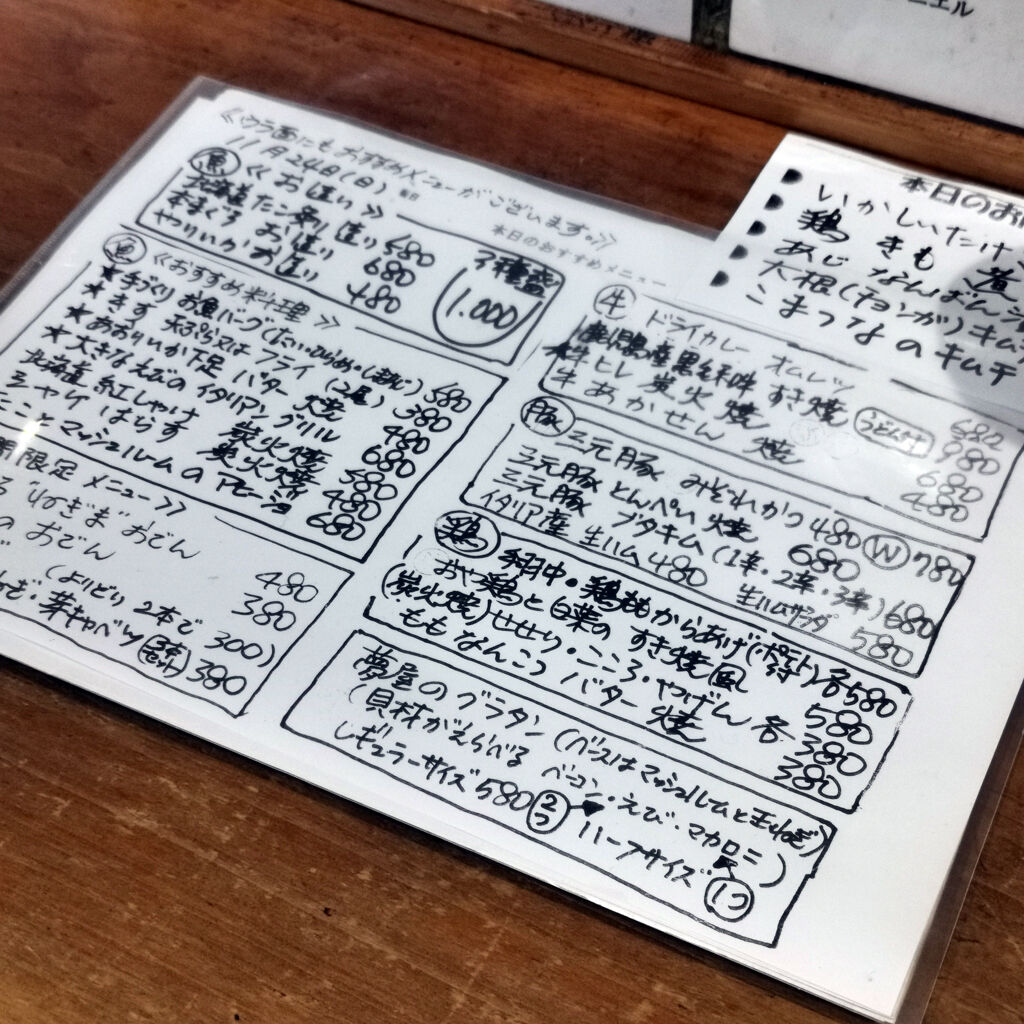 ニエル
《ウラ面にもおすすめメニューがございます。》
11月24日(日)
本日のおすすめメニュー
魚 《お造り》
北海道 たこ 造り 680
本まぐろ お造り 680
やりいか お造り 480
3種盛
1.000
魚 《おすすめ料理》
★手づくり お魚バーグ 580
★きす 天ぷら又は フライ(2尾) 380
★あおりいか下足 バター焼 480
★大きなえびの イタリアングリル 680
北海道 紅しゃけ 炭火焼 580
シャケ はらす 炭火焼 480
たことマッシュルームのアヒージョ 680
間限定 メニュー》
"ねぎま"おでん 480
のおでん 380
(よりどり 2本で 300)
ねぎ・芽キャベツ 380
牛 ドライカレー オムレツ 680
産黒毛和牛 すき焼 うどん付 980
牛ヒレ 炭火焼 680
牛 あかせん 焼 480
豚 三元豚 みぞれかつ 480 W 780
三元豚 とんぺい焼 680
三元豚 ブタキム(1辛・2辛・3辛) 680
イタリア産 生ハム 480 生ハムサラダ 580
鶏 手羽中・鶏ももからあげ(ポテト付) 各580
おや鶏と白菜の すき焼風 580
(炭火焼) せせり・こころ・やげん 各380
・ももなんこつ バター焼 380
夢屋のグラタン (ベースはマッシュルームと玉ねぎ)
(具材がえらべる ベーコン・えび・マカロニ)
レギュラーサイズ 580 2つ ハーフサイズ 1つ
本日のお
いかしいたけ
鶏 きも 煮
あじ なんばん漬
大根(チョンガ)キムチ
こまつなのキムチ